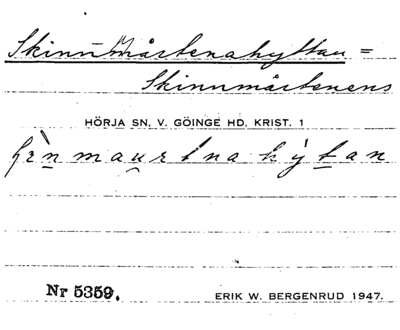 Skinnmårtenahyttan =
Skinnmårtenens
HÖRJA SN, V. GÖINGE HD, KRIST. 1
Nr 5359.
ERIK W. BERGENRUD 1947.